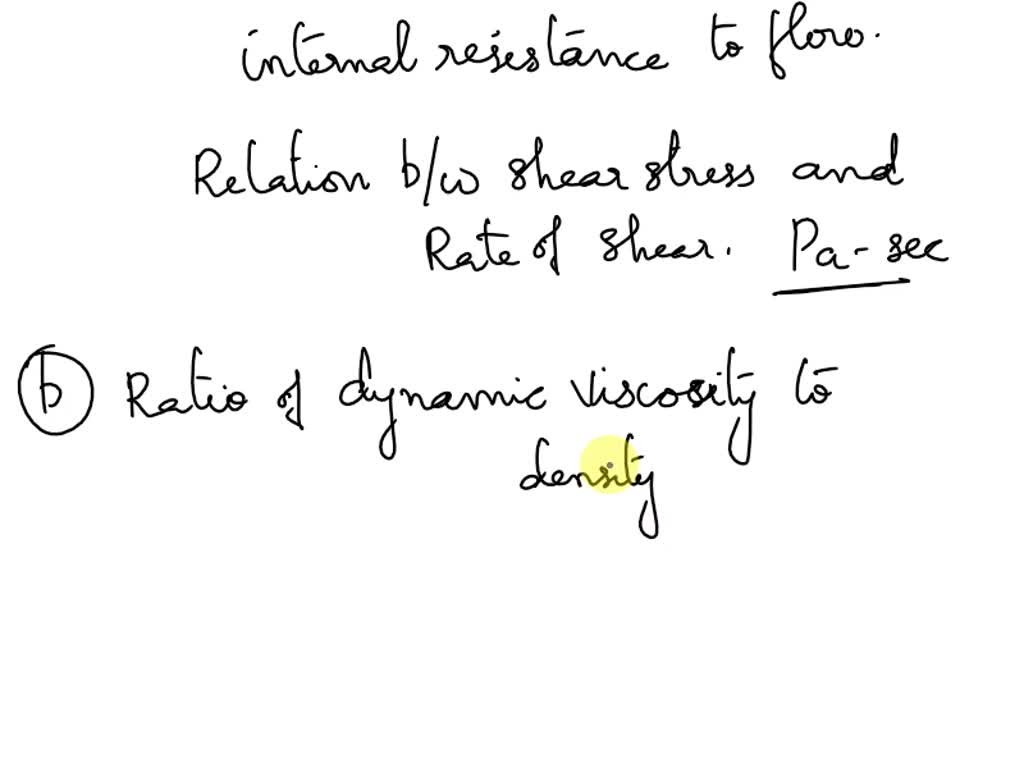 internal resistance to flow.
Relation b/w shear stress and
Rate of shear. Pa-sec
b Ratio of dynamic viscosity to
density